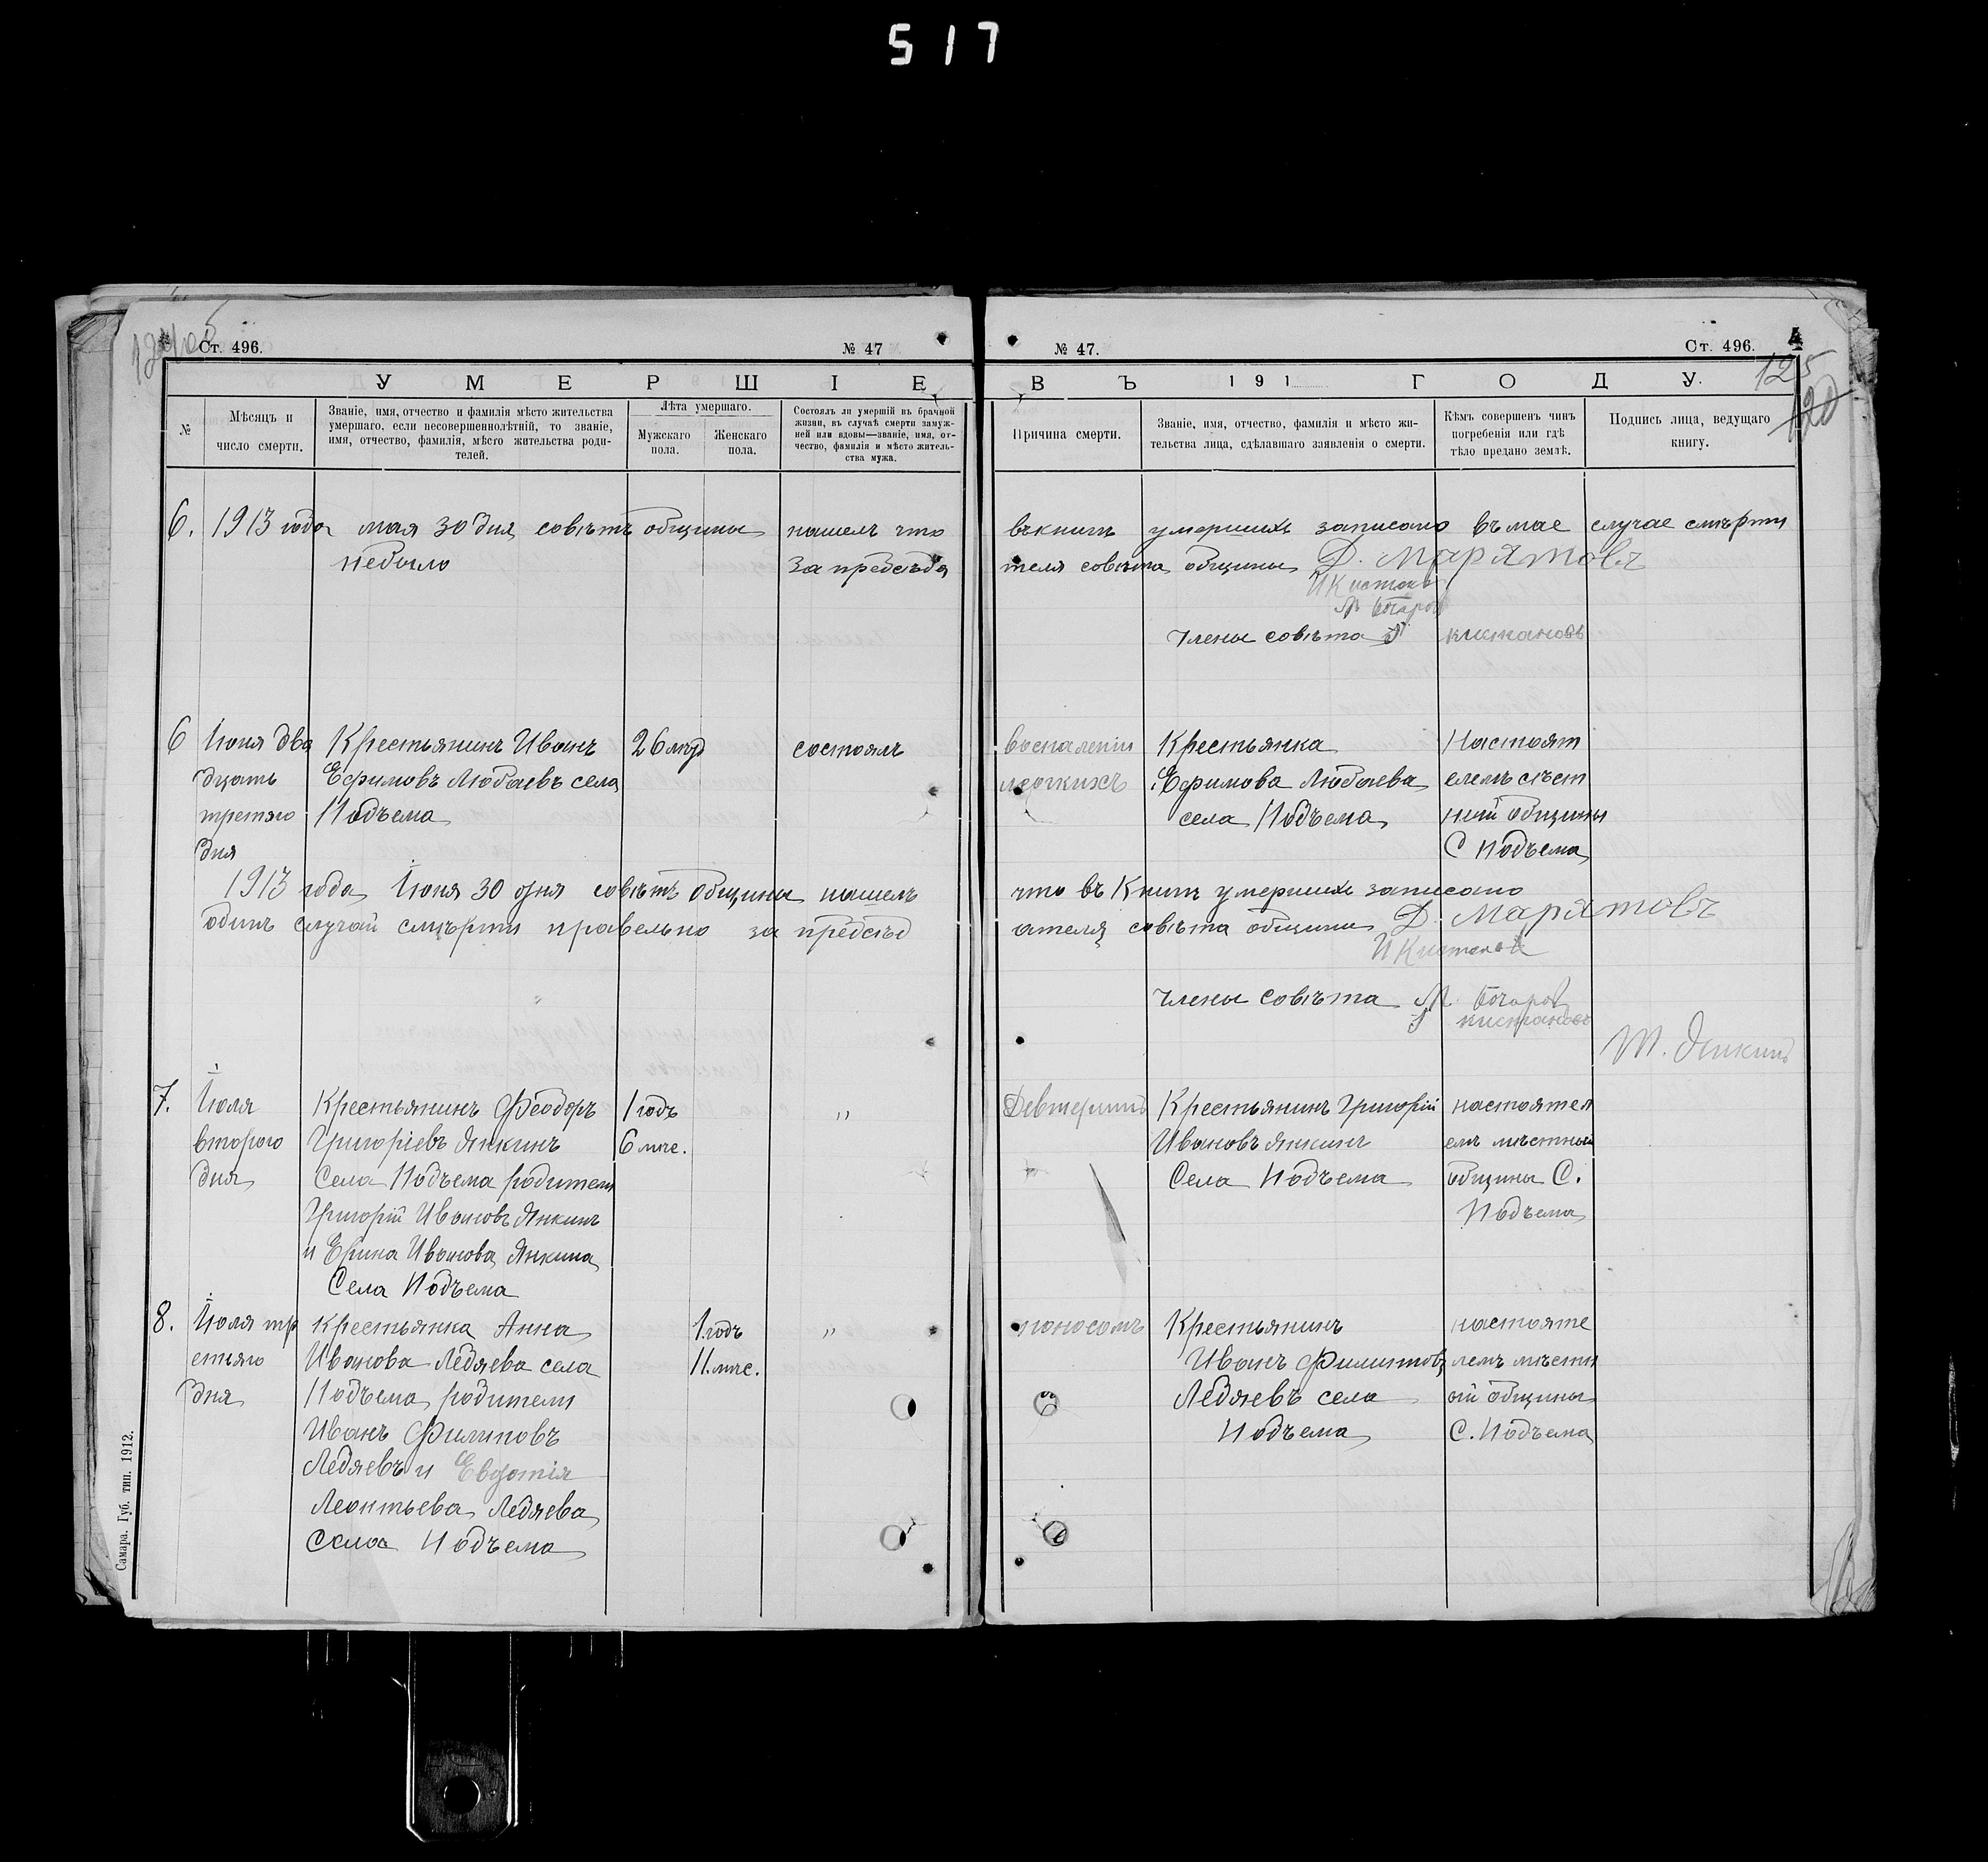 517
Ст. 496.
№ 47
УМЕРШІЕ
№
Мѣсяцъ и
число смерти.
Званіе, имя, отчество и фамилія мѣсто жительства
умершаго, если несовершеннолѣтній, то званіе,
имя, отчество, фамилія, мѣсто жительства роди-
телей.
Лѣта умершаго.
Мужскаго
пола.
Женскаго
пола.
Состоялъ ли умершій въ брачной
жизни, въ случаѣ смерти замуж-
ней или вдовы—званіе, имя, от-
чество, фамилія и мѣсто житель-
ства мужа.
№ 47.
Ст. 496.
4
125
120
ВЪ 191 ГОДУ.
Причина смерти.
Званіе, имя, отчество, фамилія и мѣсто жи-
тельства лица, сдѣлавшаго заявленія о смерти.
Кѣмъ совершенъ чинъ
погребенія или гдѣ
тѣло предано землѣ.
Подпись лица, ведущаго
книгу.
6. 1913 года мая 30 дня совѣтъ общины нашелъ что
вѣкнигѣ умершихъ записано въ мае случае смѣрти
небыло за предсѣда
теля совѣта общины Д. Марятовъ
И Кистановъ
Члены совѣта
кистановъ
6
Іюня два
дцать
третяго
дня
Крестьянинъ Иванъ
Ефимовъ Любаевъ села
Подъема
26 лѣтъ
состоялъ
воспаленіи
легкихъ
Крестьянка
Ефимова Любаева
села Подъема
Настоят
елемъ мѣст
ной общины
С Подъема
1913 года Іюня 30 дня совѣтъ общины нашелъ
что въ Книгѣ умершихъ записано
одинъ случай смѣрти правельно за предсѣд
ателя совѣта общины Д. Марятовъ
И Кистановъ
Члены совѣта
кистановъ
Т. Янкинъ
7.
Іюля
второго
дня
Крестьянинъ Феодоръ
Григоріевъ Янкинъ
Села Подъема родители
Григорій Ивановъ Янкинъ
и Ерина Иванова Янкина
Села Подъема
1 годъ
6 мѣс.
"
Девтеритъ
Крестьянинъ Григорій
Ивановъ Янкинъ
Села Подъема
настоятел
емъ мѣстный
общины С.
Подъема
8.
Іюля тр
етьяго
дня
Крестьянка Анна
Иванова Ледяева села
Подъема родители
Иванъ Филиповъ
Ледяевъ и Евдотія
Леонтьева Ледяева
Села Подъема
1.годъ
11.мѣс.
"
поносомъ
Крестьянинъ
Иванъ Филиповъ
Ледяевъ села
Подъема
настояте
лемъ мѣстн
ой общины
С. Подъема
Самара. Губ. тип. 1912.